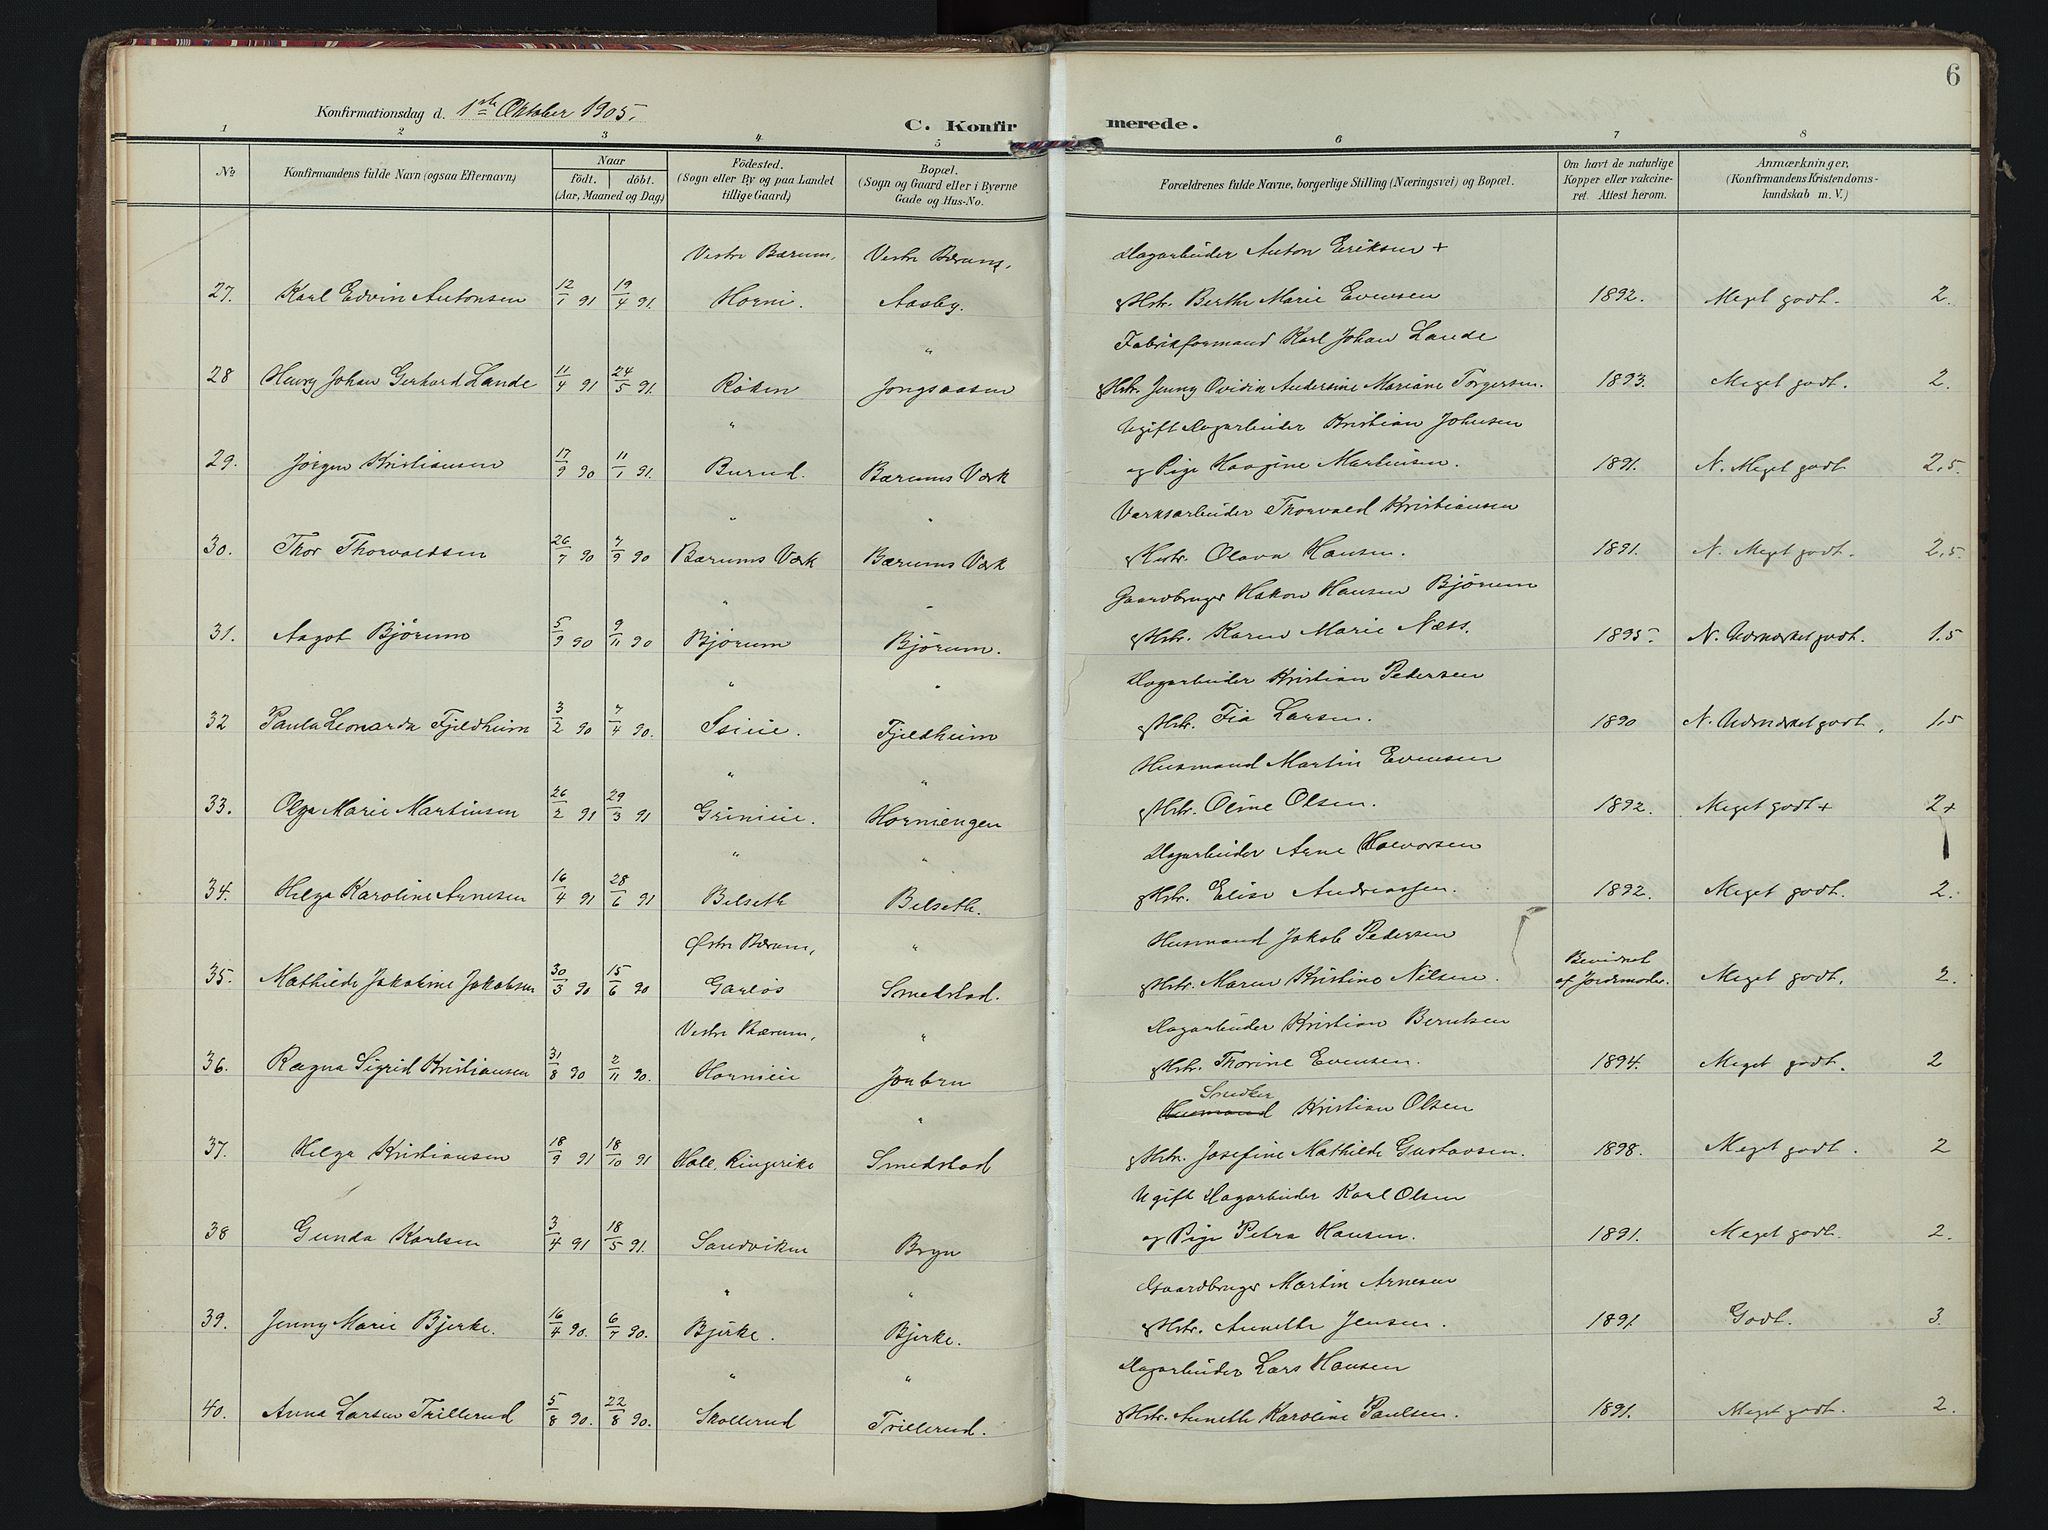 6
Konfirmationsdag d. 1ste Oktober 1905.
C. Konfirmerede.
1 2 3 4 5 6 7 8
No
Konfirmandens fulde Navn (ogsaa Efternavn)
Naar
födt. döbt.
(Aar, Maaned og Dag)
Födested.
(Sogn eller By og paa Landet
tillige Gaard)
Bopæl.
(Sogn og Gaard eller i Byerne
Gade og Hus-No.
Forældrenes fulde Navne, borgerlige Stilling (Næringsvei) og Bopæl.
Om havt de naturlige
Kopper eller vakcine-
ret. Attest herom.
Anmærkninger.
(Konfirmandens Kristendoms-
kundskab m. V.)
Vestre Bærum, Vestre Bærum, Dagarbeider Anton Eriksen +
27. Karl Edvin Antonsen 12/1 91 19/4 91. Horni. Aasby. & Hstr. Berthe Marie Evensen 1892. Meget godt. 2.
" Fabrikformand Karl Johan Lande
28 Henry Johan Gerhard Lande 11/4 91 24/5 91. Røken Jongsaasen & Hstr. Jenny Ovidia Andersine Mariane Torgersen. 1893. Meget godt. 2.
" Ugift Dagarbeider Kristian Johnsen
29. Jörgen Kristiansen 17/9 90 11/1 91. Burud. Bærums Værk og Pige Haagine Martinsen. 1891. N. Meget godt 2,5.
" " Værksarbeider Thorvald Kristiansen
30. Thor Thorvaldsen 26/7 90 7/9 90 Bærums Værk Bærums Værk & Hstr. Olava Hansen. 1891. N. Meget godt. 2,5.
" " Gaardbruger Hakon Hansen Bjørum
31. Aagot Bjørum 5/9 90 9/11 90 Bjørum Bjørum. & Hstr. Karen Marie Næss. 1895 N. Udmærket godt. 1.5
" " Dagarbeider Kristian Pedersen
32 Paula Leonarda Fjeldheim 3/2 90 7/4 90. Isieie. Fjeldheim & Hstr. Fia Larsen. 1890 N. Udmærket godt. 1,5
" " Husmand Martin Evensen
33. Olga Marie Martinsen 26/2 91 29/3 91 Grinieie. Horniengen & Hstr. Oline Olsen. 1892. Meget godt + 2+
" " Dagarbeider Arne Halvorsen
34. Helga Karoline Arnesen 16/4 91 28/6 91 Belseth Belseth. & Hstr. Elise Andreassen. 1892. Meget godt. 2.
Østre Bærum, " Husmand Jakob Pedersen
35. Mathilde Jakobine Jakobsen 30/3 90 15/6 90 Garløs Smedstad. & Hstr. Maren Kristine Nilsen. Bevidnet af Jordemoder. Meget godt. 2.
Vestre Bærum, " Dagarbeider Kristian Berntsen
36. Ragna Sigrid Kristiansen 31/8 90 2/11 90. Hornieie Jonbru & Hstr. Thorine Evensen. 1894. Meget godt. 2
" Smedker
Husmand Kristian Olsen
37. Helga Kristiansen 18/9 91 18/10 91 Hole, Ringerike Smedstad & Hstr. Josefine Mathilde Gustavsen. 1898. Meget godt. 2
Ugift Dagarbeider Karl Olsen
38 Gunda Karlsen 3/4 91 18/5 91. Sandviken Bryn og Pige Petra Hansen. 1891. Meget godt. 2.
" " Gaardbruger Martin Arnesen
39. Jenny Marie Bjerke. 16/4 90. 6/7 90. Bjerke. Bjerke. & Hstr. Annethe Jensen. 1891. Godt. 3.
" " Dagarbeider Lars Hansen
40. Anna Larsen Trillerud 5/8 90. 22/8 90. Skollerud Trillerud. & Hstr. Annethe Karoline Paulsen. 1891. Meget godt. 2.